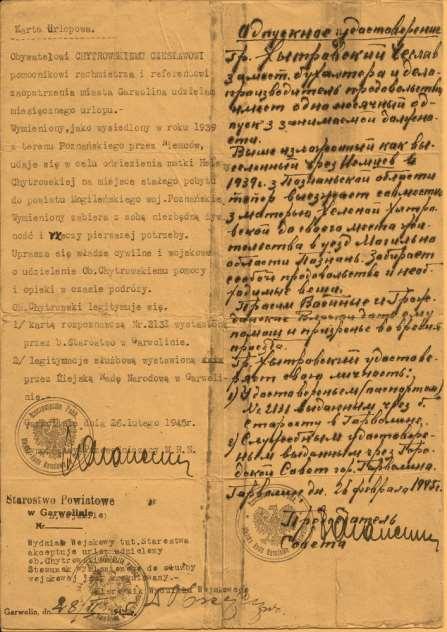 Karta Urlopowa.
Obywatelowi CHYTROWSKIEMU CZESŁAWOWI
pomocnikowi rachmistrza i referentowi
zaopatrzenia miasta Garwolina udzielam
miesięcznego urlopu.
Wymieniony, jako wysiedlony w roku 1939
z terenu Poznańskiego przez Niemców,
udaje się w celu odwiezienia matki
Chytrowskiej na miejsce stałego pobytu
do powiatu Mogileńskiego woj. Poznańskie
Wymieniony zabiera z sobą niezbędną żyw
ność i rzeczy pierwszej potrzeby.
Uprasza się władze cywilne i wojskowe
o udzielenie Ob. Chytrowskiemu pomocy
i opieki w czasie podróży.
Ob. Chytrowski legitymuje się.
1/ kartą rozpoznawczą Nr. 2131 wystawioną
przez b. Starostwo w Garwolinie.
2/ legitymacją służbową wystawioną
przez Miejską Radę Narodową w Garwoli-
nie.
dnia 26 lutego 1945r.
M.R.N.
Starostwo Powiatowe
w Garwolinie
N
Wydział Wojskowy tut. Starostwa
akceptuje urlop udzielony
ob. Chytrowskiemu
Stosunek wymienionego do służby
wojskowej jest uregulowany.
Kierownik Wydziału Wojskowego
Garwolin, dn. 28
Отпускное удостоверение
Гр. Хытровский Чеслав
замест. бухгалтера и дело
производитель продовольствия
имеет одномесячный от
пуск з занимаемой должно
сти.
Выше изложенный как вы
селенный чрез Немцев в
1939 г. з Познанской области
тепер выезжает совместно
з матерью Хеленой Хитров
ской до своего места жи
тельства в уезд Могильно
области Познань. Забирает
собой продовольствие и необ
ходимые вещи.
Просим Военные и Граж
данские Власти дать ему
помощ и во время
проезда.
Гр. Хытровский удостове
ряет свою личность:
1) Удостовереньем (паспортом)
№ 2131 выданным чрез б.
старосту в Гарволине.
2) Служебным удостовере
нием выданным чрез Горо
дской Совет гор. Гарволина.
Гарволин дн. 26 февраля 1945 г.
Председатель
Совета